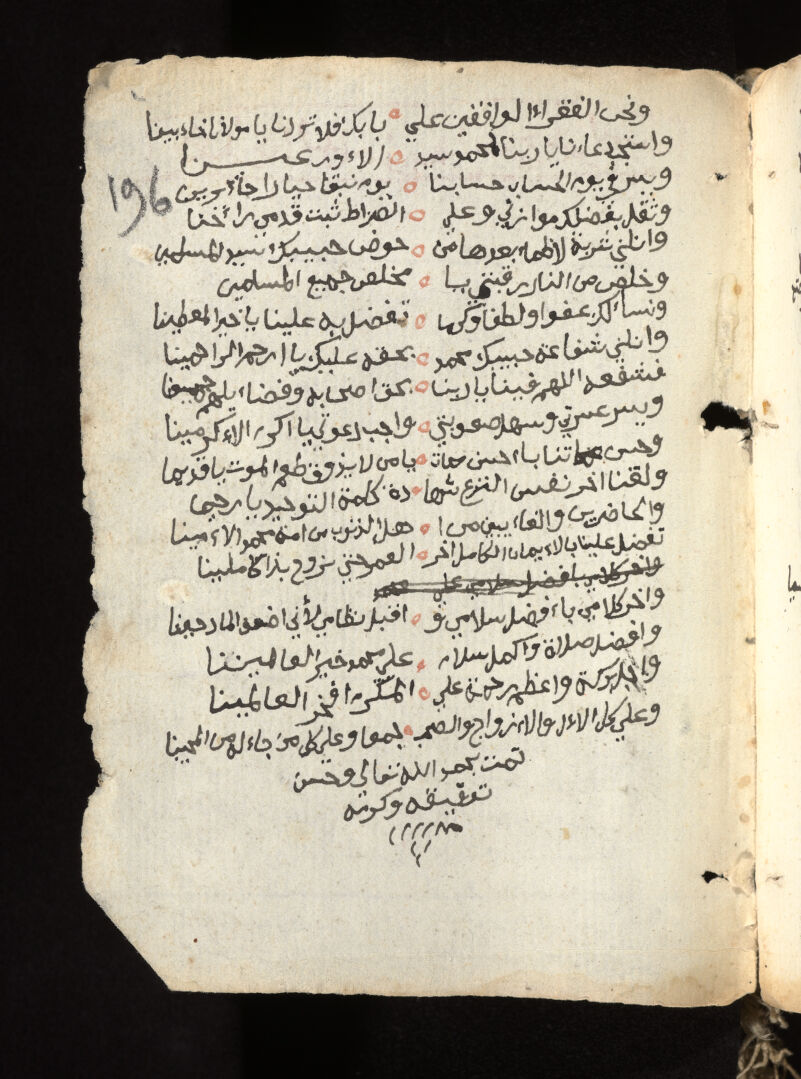 ونحن الفقراء الواقفين علي بابك فلا تردنا يا مولانا خائبينا
واستجب دعانا يا ربنا لمحمد سيد الاولا
ويسر في يوم الحساب حسابنا يوم نبقا حيارا
196
وثقل بفضلك موازني وعلي الصراط ثبت قدمي
وانلني شربة لا ظما بعدها من حوض حبيبك سيد المسلمين
وخلص من النار رقبتي يا مخلص جميع المسلمين
ونسالك عفوا ولطفا وكرما تفضل به علينا يا خير المعطينا
وانلني شفاعة حبيبك محمد بحقه عليك يا ارحم الراحمينا
فشفعه اللهم فينا يا ربنا بحق اصحابه وفضايلهم
ويسر عسرتي وسهل صعوبتي واجب دعوتي يا اكرم الاكرمينا
وحسن مماتنا يا احسن يا من لا يذوق طعم الموت يا قديما
ولقنا اخر نفس النزع شها دة كلمة التوحيد يا رحيما
والحاضرين والغائبين من ا هل الذنوب من امة محمد الامينا
تفضل علينا بالايمان الكامل اخر العمر حتي نروح بذا كاملينا
واخر كلامي بافضل سلامي و اقبل نظامي لاني اضعف المادحينا
وافضل صلاة واكمل سلام علي محمد خير العالميننا
بركة واعظم رحمة علي المكرم افخر العالمينا
وعلي كل الال والازواج والصحب جمعا وعلي كل من جاء له من المحبينا
تمت بحمد الله تعالي وحسن
توفيقه وكرمه